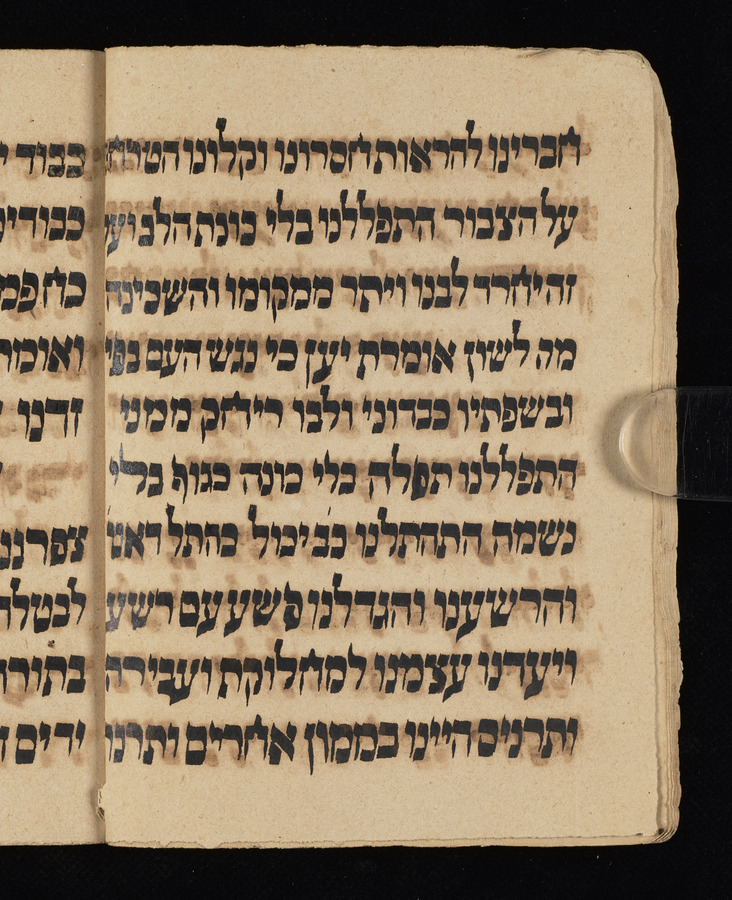 חברינו להראות חסרונו וקלונו הטרחנו
על הצבור התפללנו בלי כונת הלב ועל
זה יחרד לבנו ויתר ממקומו והשכינה
מה לשון אומרת יען כי נגש העם בפיו
ובשפתיו כבדוני ולבו ריחק ממני
התפללנו תפלה בלי כונה כגוף בלי
נשמה התהתלנו כביכול כהתל
והרשענו והגדלנו פשע עם רשע
ויעדנו עצמנו למחלוקת ועבירה
ותרנים היינו בממון אחרים ותרנו
כבוד
כבודינו
ואומר
זדנו
לבטלה
בתורה
ידים